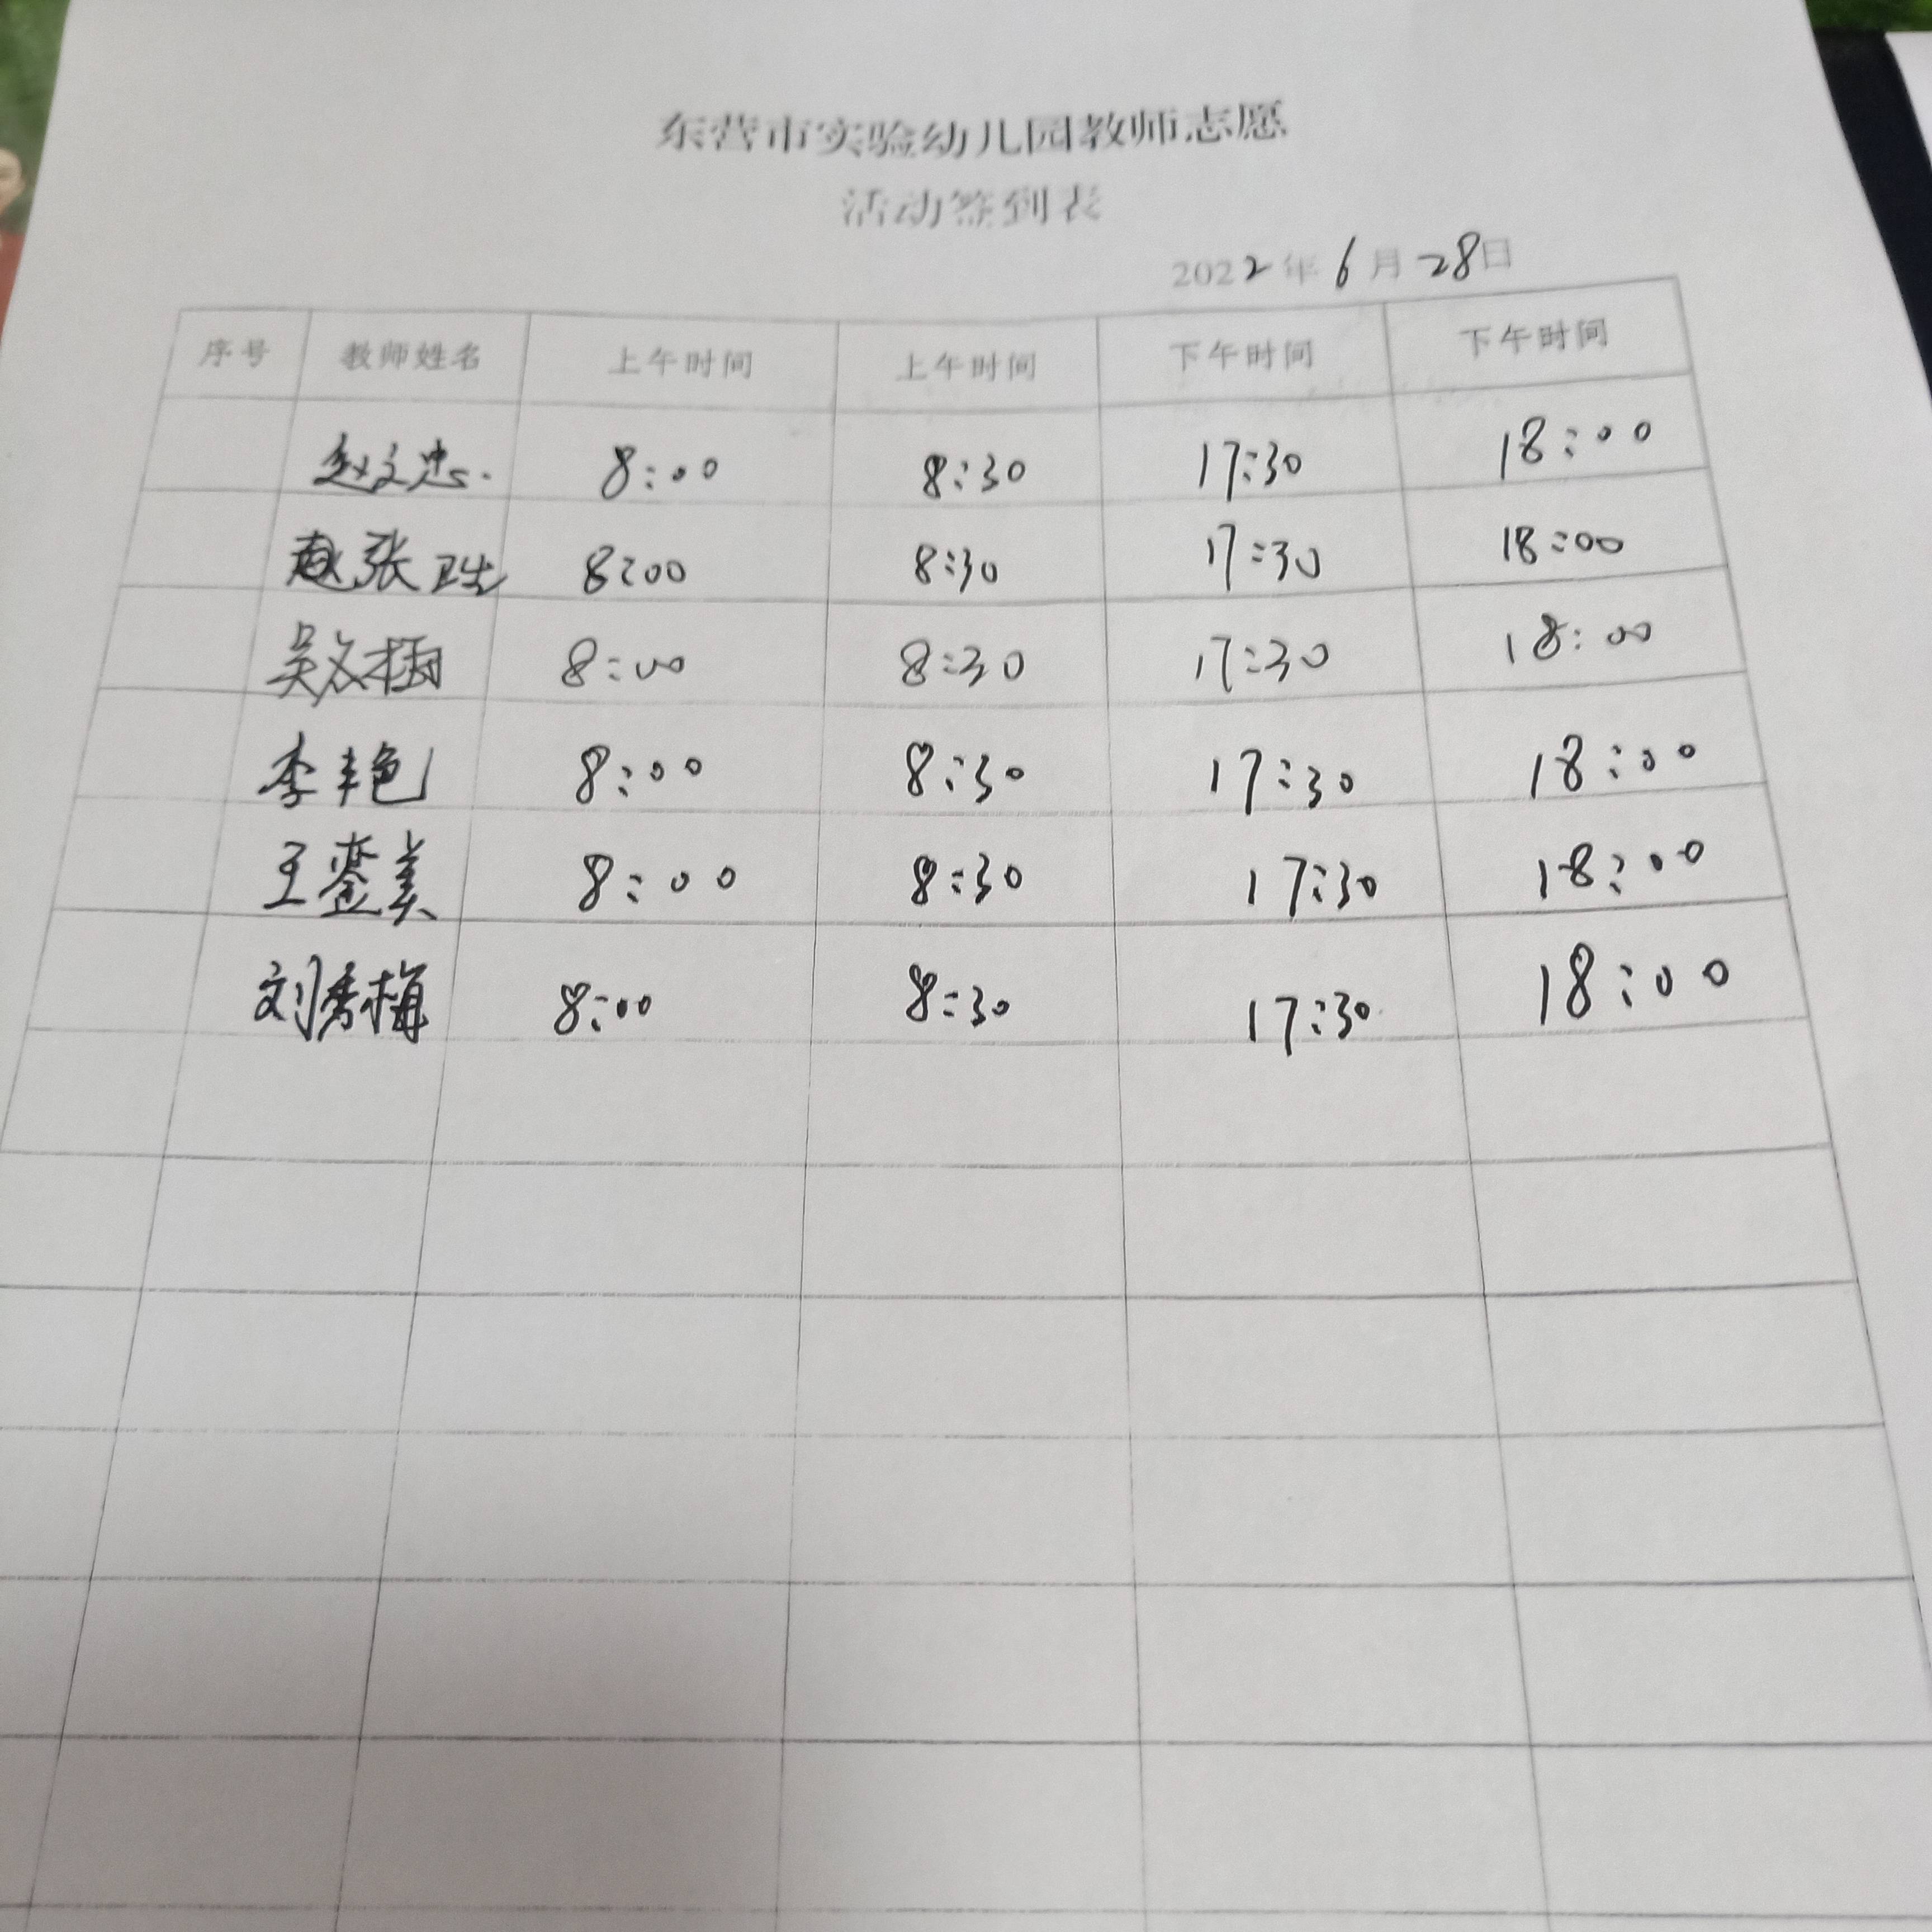 东营市实验幼儿园教师志愿
活动签到表
2022年6月28日
序号 教师姓名 上午时间 上午时间 下午时间 下午时间
赵文忠 8:00 8:30 17:30 18:00
张 8:00 8:30 17:30 18:00
吴 8:00 8:30 17:30 18:00
李艳 8:00 8:30 17:30 18:00
王蓥美 8:00 8:30 17:30 18:00
刘秀梅 8:00 8:30 17:30 18:00